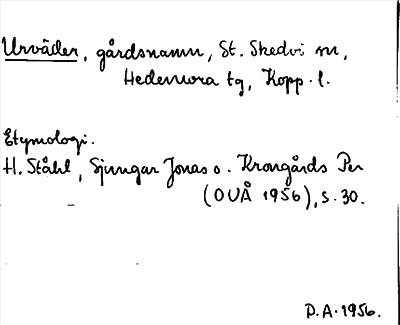 Urväder, gårdsnamn, St. Skedvi sn,
Hedemora tg, Kopp. l.
Etymologi.
H. Ståhl, Sjungar Jonas o. Krongårds Per
(OUÅ 1956), s. 30.
D.A. 1956.